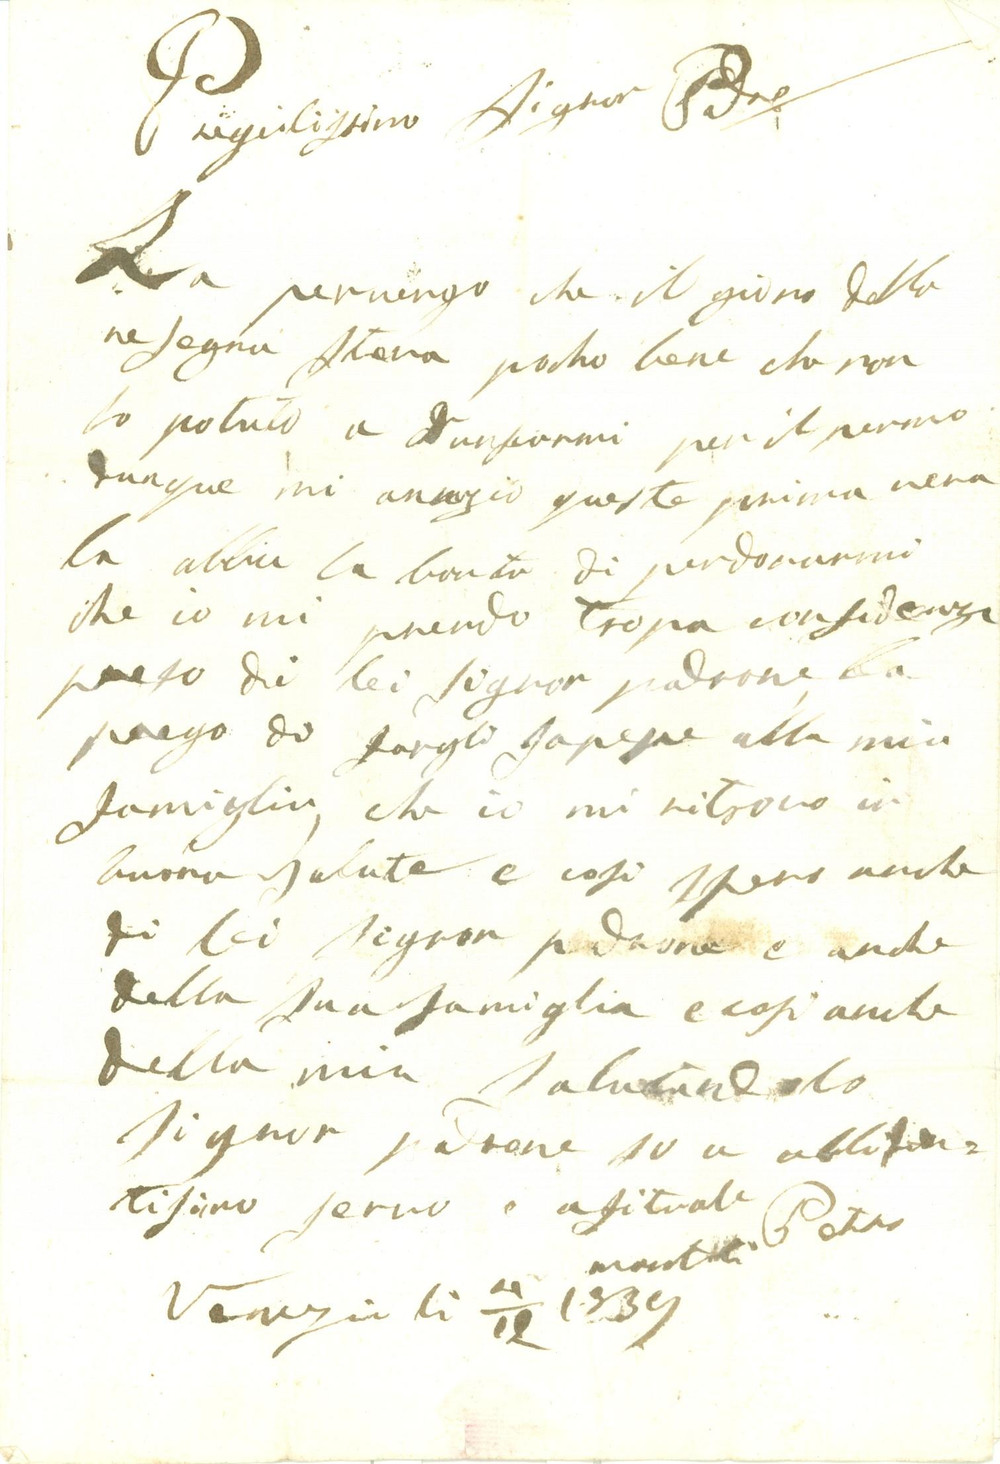 Pregiatissimo Signor Padro
La pervengo che il giorno della
resegna steva pocho bene che non
o potuto a dunfarmi per il permo
dunque mi anuzio queste prima vera
la abbia la bonta di perdonarmi
che io mi prendo tropa confidenza
preso di lei Signor padrone, la
prego di fargli sapepe alla mia
famiglia, che io mi ritrovo in
buona salute e cosi spero anche
di lei Signor padrone e anche
della sua famiglia e cosi anche
della mia salutandolo
Signor padrone so a
tisimo servo e afitvale Petro
Venezia li 1839